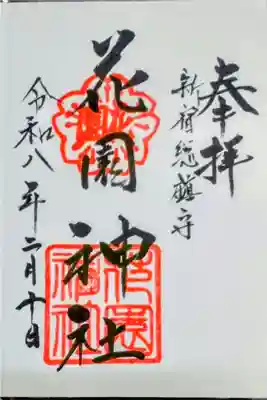 奉拝
新宿総鎮守
花園神社
花園神社
令和八年二月十日